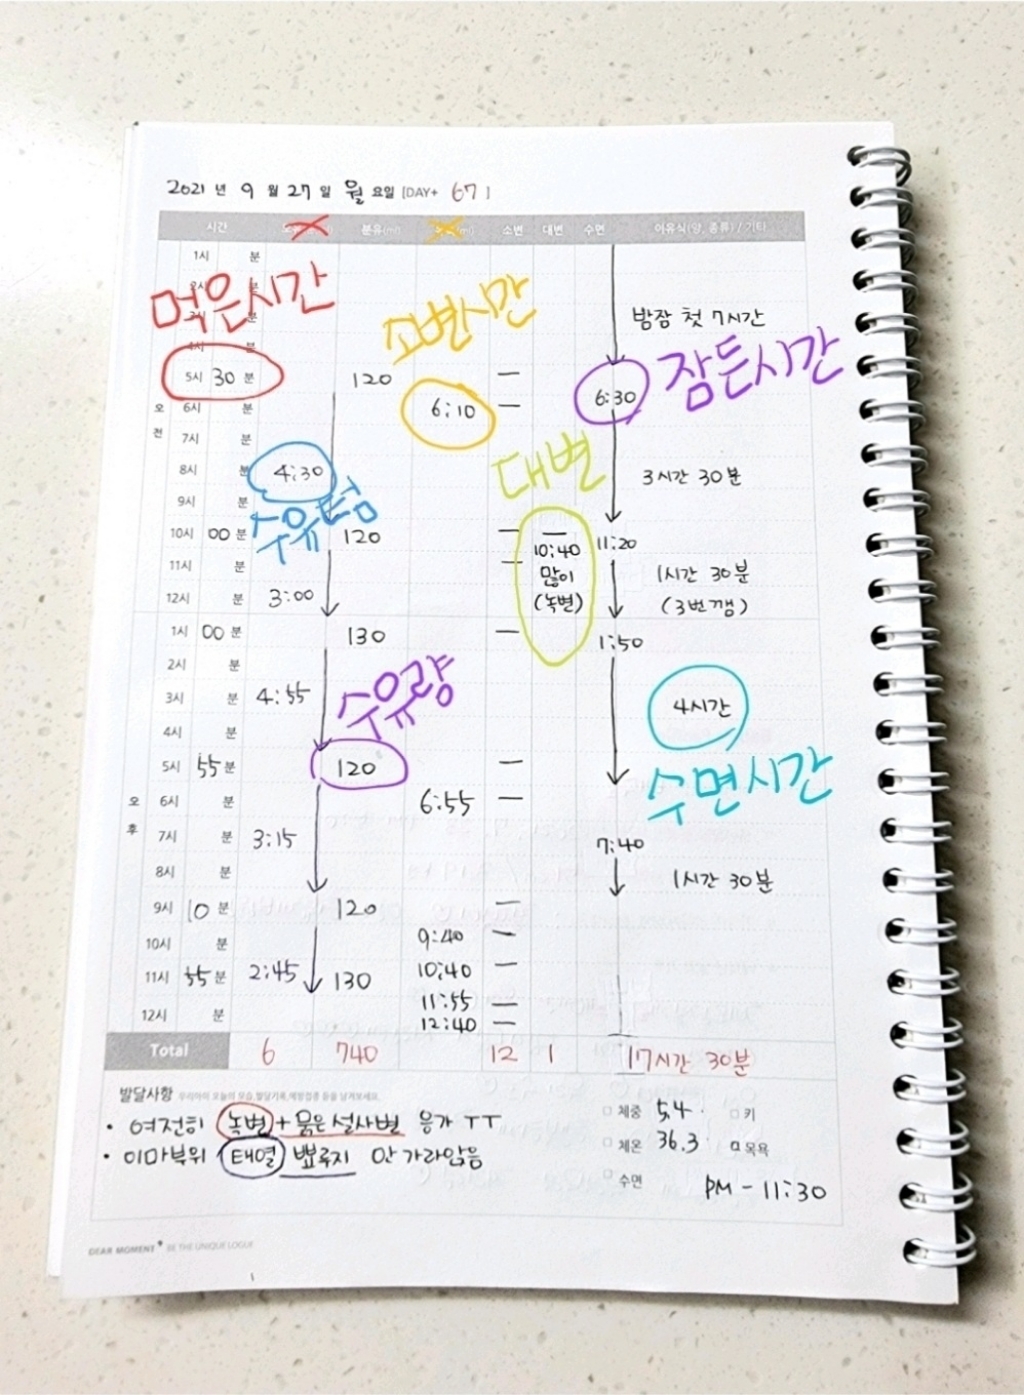 2021 년 9 월 27 일 월 요일 [DAY+ 67 ]
시간 분유(ml) 소변 대변 수면 이유식(양, 종류) / 기타
1시 분
2시 분
먹은시간
3시 분 소변시간 밤잠 첫 7시간
4시 분
5시 30 분 120 — 6:30 잠든시간
오전
6시 분 6:10 —
7시 분
8시 분 4:30 대변 3시간 30분
9시 분 수유텀
10시 00 분 120 — — 11:20
10:40
11시 분 — 많이 1시간 30분
12시 분 3:00 (녹변) (3번깸)
1시 00 분 130 — 1:50
2시 분
3시 분 4:55 수유량 4시간
4시 분
5시 55 분 120 — 수면시간
오후
6시 분 6:55 —
7시 분 3:15 7:40
8시 분 1시간 30분
9시 10 분 120 —
10시 분 9:40 —
11시 55 분 2:45 130 10:40 —
11:55 —
12시 분 12:40 —
Total 6 740 12 1 17시간 30분
발달사항
• 여전히 녹변 + 묽은 설사변 응가 ㅜㅜ
• 이마부위 태열 뾰루지 안 가라앉음
체중 5.4 키
체온 36.3 목욕
수면 PM - 11:30
DEAR MOMENT BE THE UNIQUE LOGUE